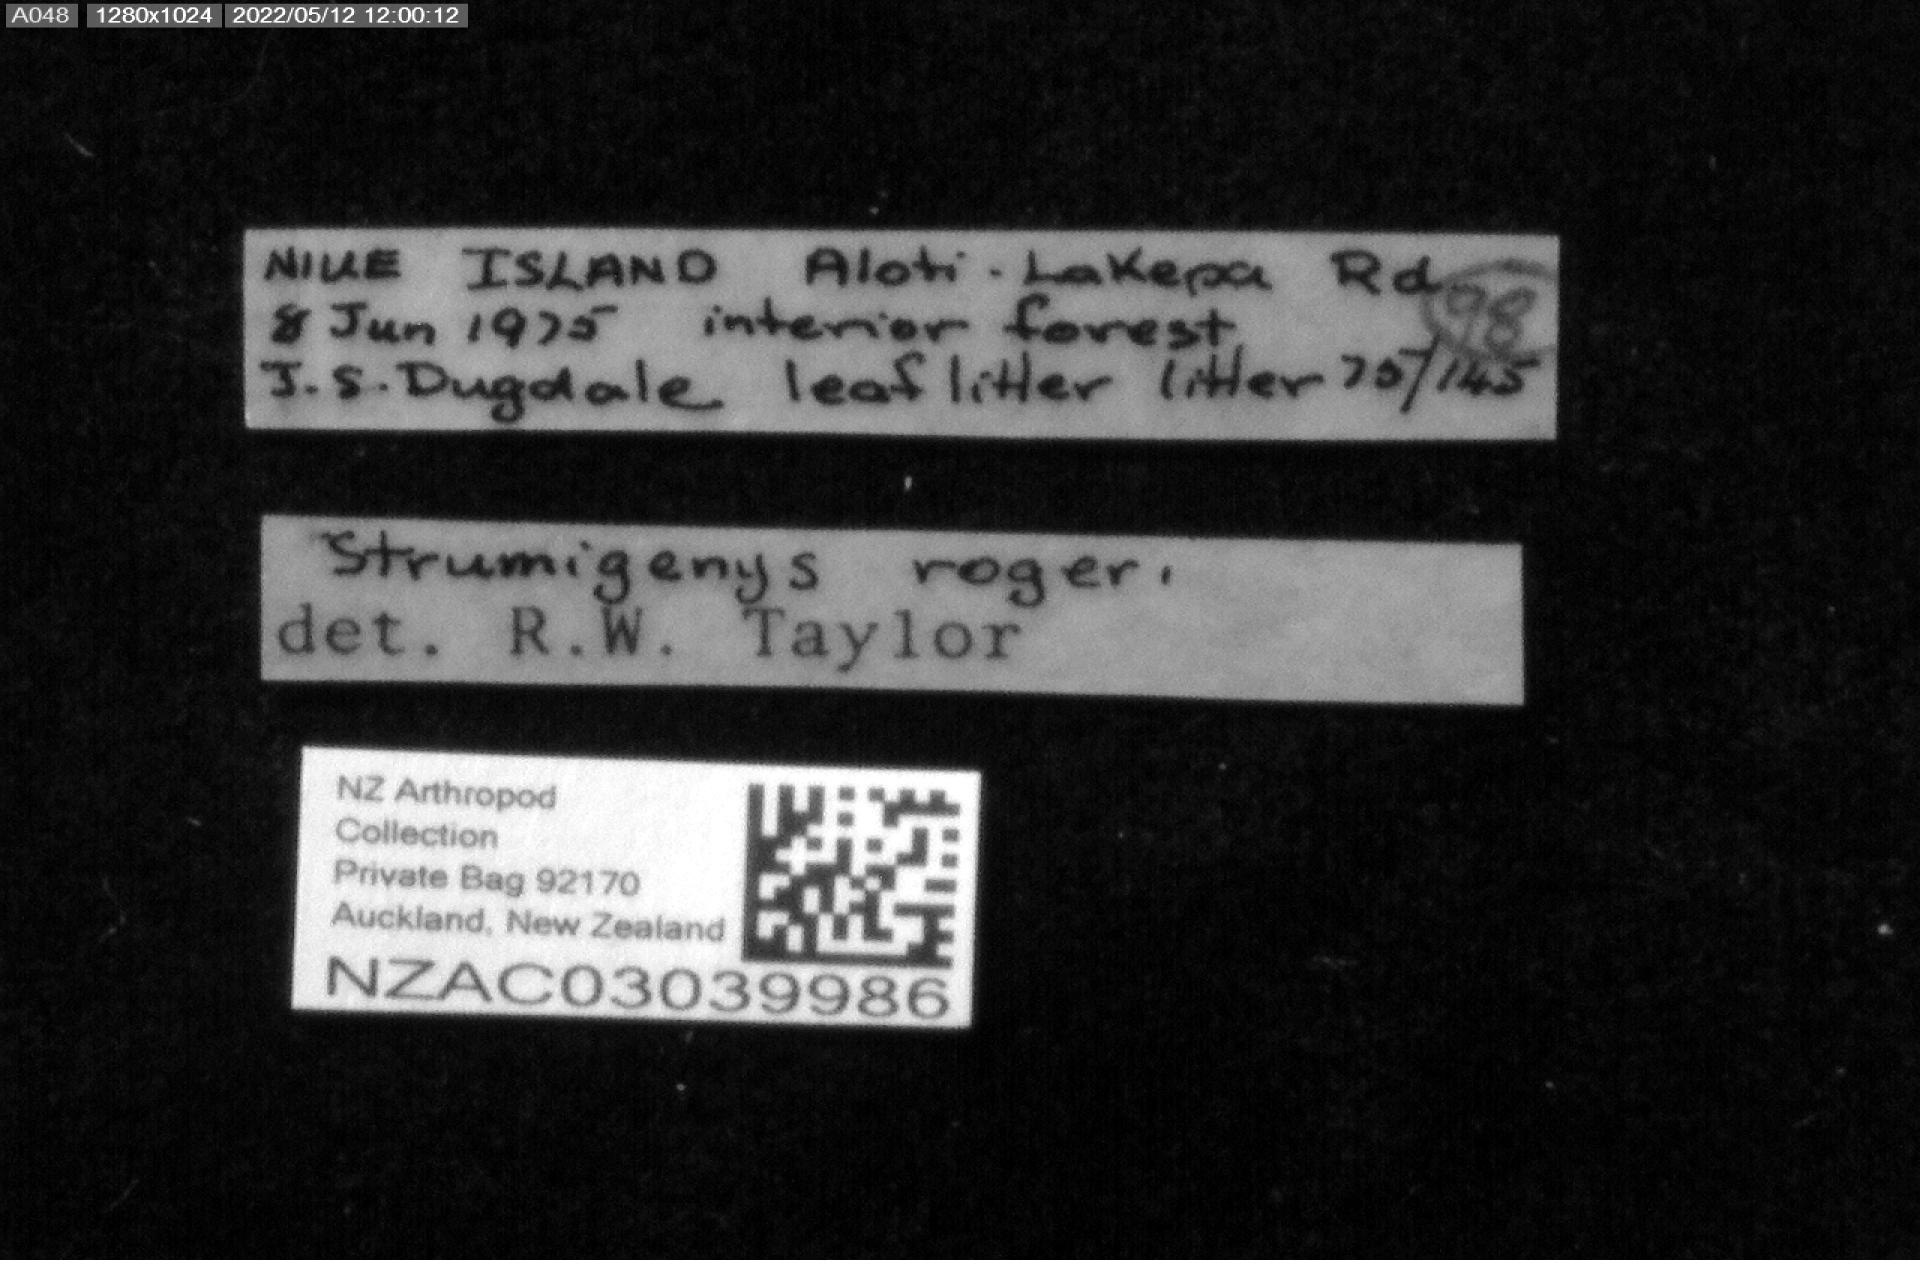 A048 1280x1024 2022/05/12 12:00:12
NIUE ISLAND Alofi - Lakepa Rd
98
8 Jun 1975 interior forest
J.S. Dugdale leaf litter litter 75/145
Strumigenys rogeri
det. R.W. Taylor
NZ Arthropod
Collection
Private Bag 92170
Auckland, New Zealand
NZAC03039986